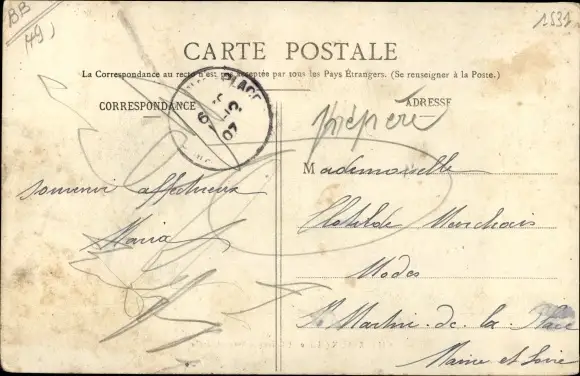 BB
(49)
1831
CARTE POSTALE
La Correspondance au recto n'est pas acceptée par tous les Pays Étrangers. (Se renseigner à la Poste.)
CORRESPONDANCE
ADRESSE
Mademoiselle
souvenir affectueux
Clotilde Marchais
Maria
Modes
St Martin-de-la Place
Maine et Loire